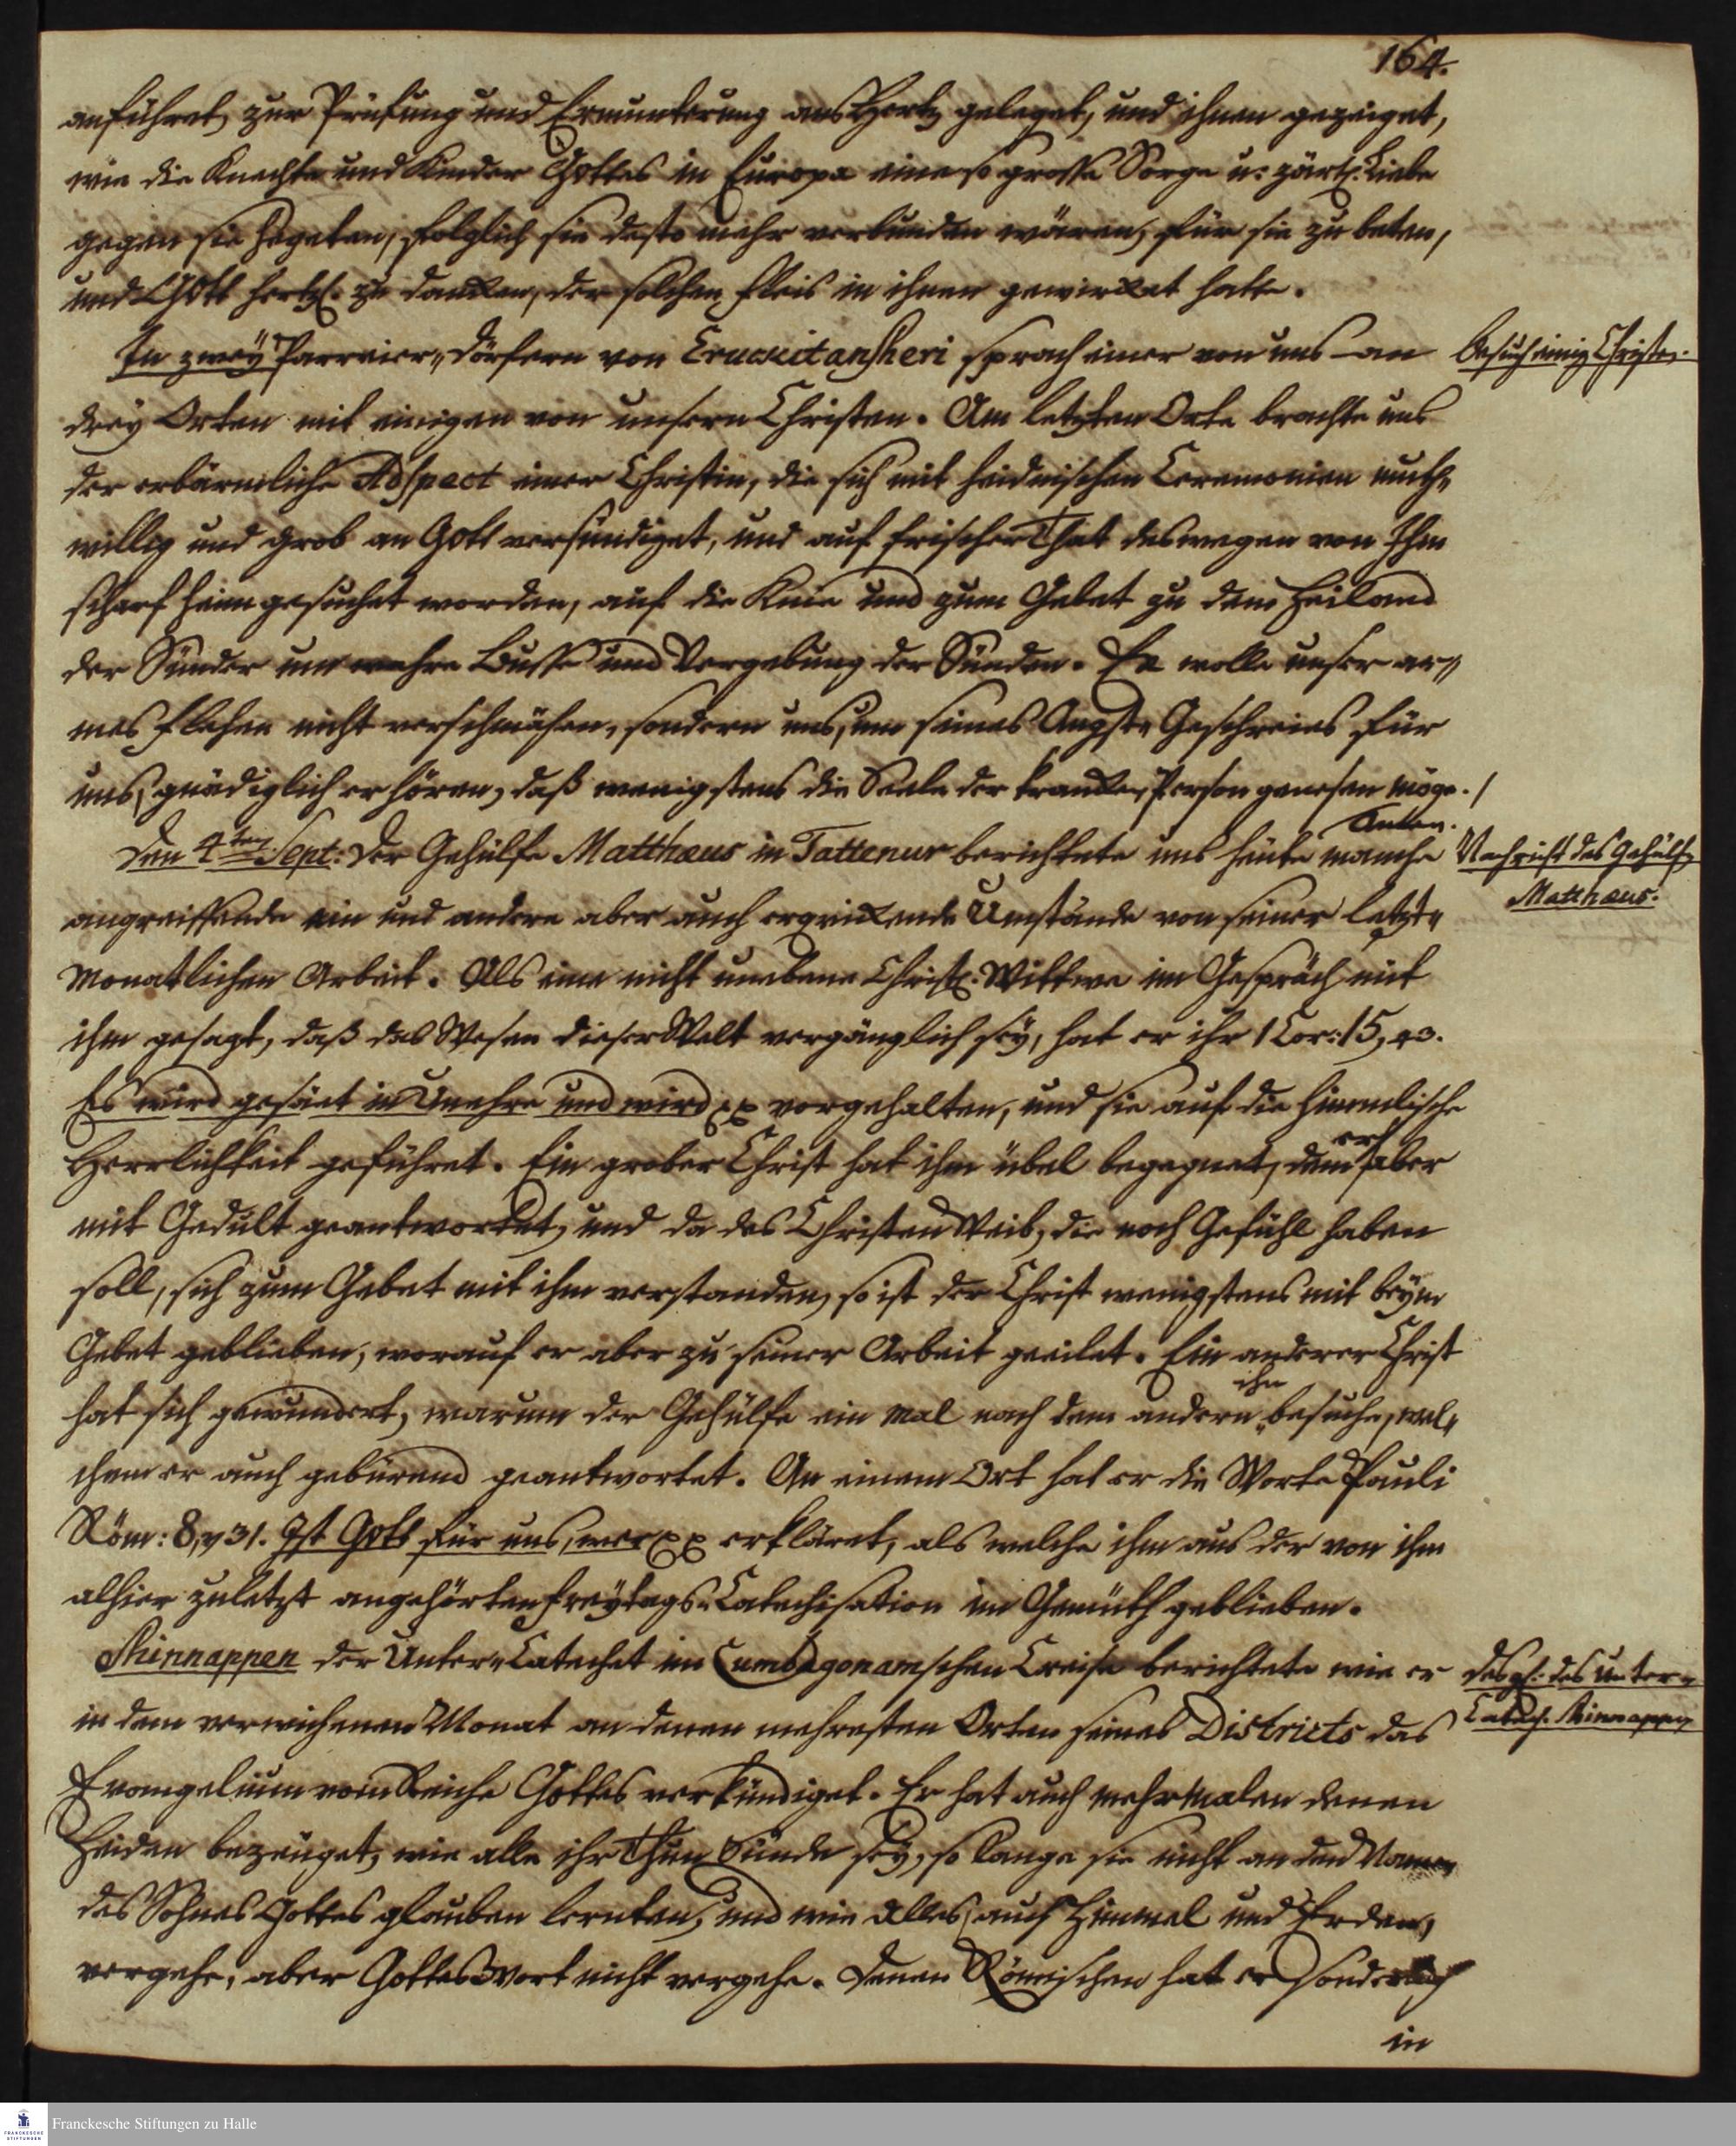 164.
anführet, zur Prüfung und Ermunterung ans Hertz geleget, und ihnen gezeiget,
wie die Knechte und Kinder Gottes in Europa eine so grosse Sorge u: zärtl. Liebe
gegen sie hegeten, folglich sie desto mehr verbunden wären, für sie zu beten,
und Gott hertzl. zu dancken, der solchen Fleis in ihnen gewircket hatte.
In zwey Parreier-Dörfern von Erucuitansheri sprach einer von uns an
Besuch einig. Christen.
drey Orten mit einigen von unsern Christen. Am letzten Orte brachte uns
der erbärmliche Adspect einer Christin, die sich mit heidnischen Ceremonien muth-
willig und grob an Gott versündiget, und auf frischer That deswegen von Ihm
scharf heimgesuchet worden, auf die Knie und zum Gebet zu dem Heiland
der Sünder um wahre Busse und Vergebung der Sünden. Er wolle unser ar-
mes Flehen nicht verschmähen, sondern uns, um seines Angst-Geschreies für
uns, gnädiglich erhören, daß wenigstens die Seele der krancken Person genesen möge. /
Den 4ten Sept: Der Gehülfe Matthaeus in Tattenur berichtete uns heute manche
Nachricht des Gehülf.
Matthaeus.
angreiffende ein und andere aber auch erquickende Umstände von seiner letzt-
monatlichen Arbeit. Als eine nicht unebene Christl. Wittwe im Gespräch mit
ihm gesagt, daß das Wesen dieser Welt vergänglich sey, hat er ihr 1 Cor: 15, 43.
Es wird gesäet in Unehre und wird xx vorgehalten, und sie auf die himmlische
Herrlichkeit geführet. Ein grober Christ hat ihm übel begegnet, dem er aber
mit Gedult geantwortet, und da des Christen Weib, die noch Gefühl haben
soll, sich zum Gebet mit ihm verstanden, so ist der Christ wenigstens mit beym
Gebet geblieben, worauf er aber zu seiner Arbeit geeilet. Ein anderer Christ
hat sich gewundert, warum der Gehülfe ein mal nach dem andern ihn besuche, wel-
chem er auch gebürend geantwortet. An einem Ort hat er die Worte Pauli
Röm: 8, v 31. Ist Gott für uns, wer xx erkläret, als welche ihm aus der von ihm
alhier zuletzt angehörten Freytags-Catechisation im Gemüth geblieben.
Shinnappen der Unter-Catechet im Cumbagonamschen Creise berichtete wie er
desgl. des Unter-
Catech. Shinnappen
in dem verwichenen Monat an denen mehresten Orten seines Districts das
Evangelium vom Reiche Gottes verkündiget. Er hat auch mehrmalen denen
Heiden bezeuget, wie alle ihr Thun Sünde sey, so lange sie nicht an den Namen
des Sohnes Gottes glauben lernten, und wie alles, auch Himmel und Erden,
vergehe, aber Gottes Wort nicht vergehe. Denen Römischen hat er sonderlich
in
Franckesche Stiftungen zu Halle